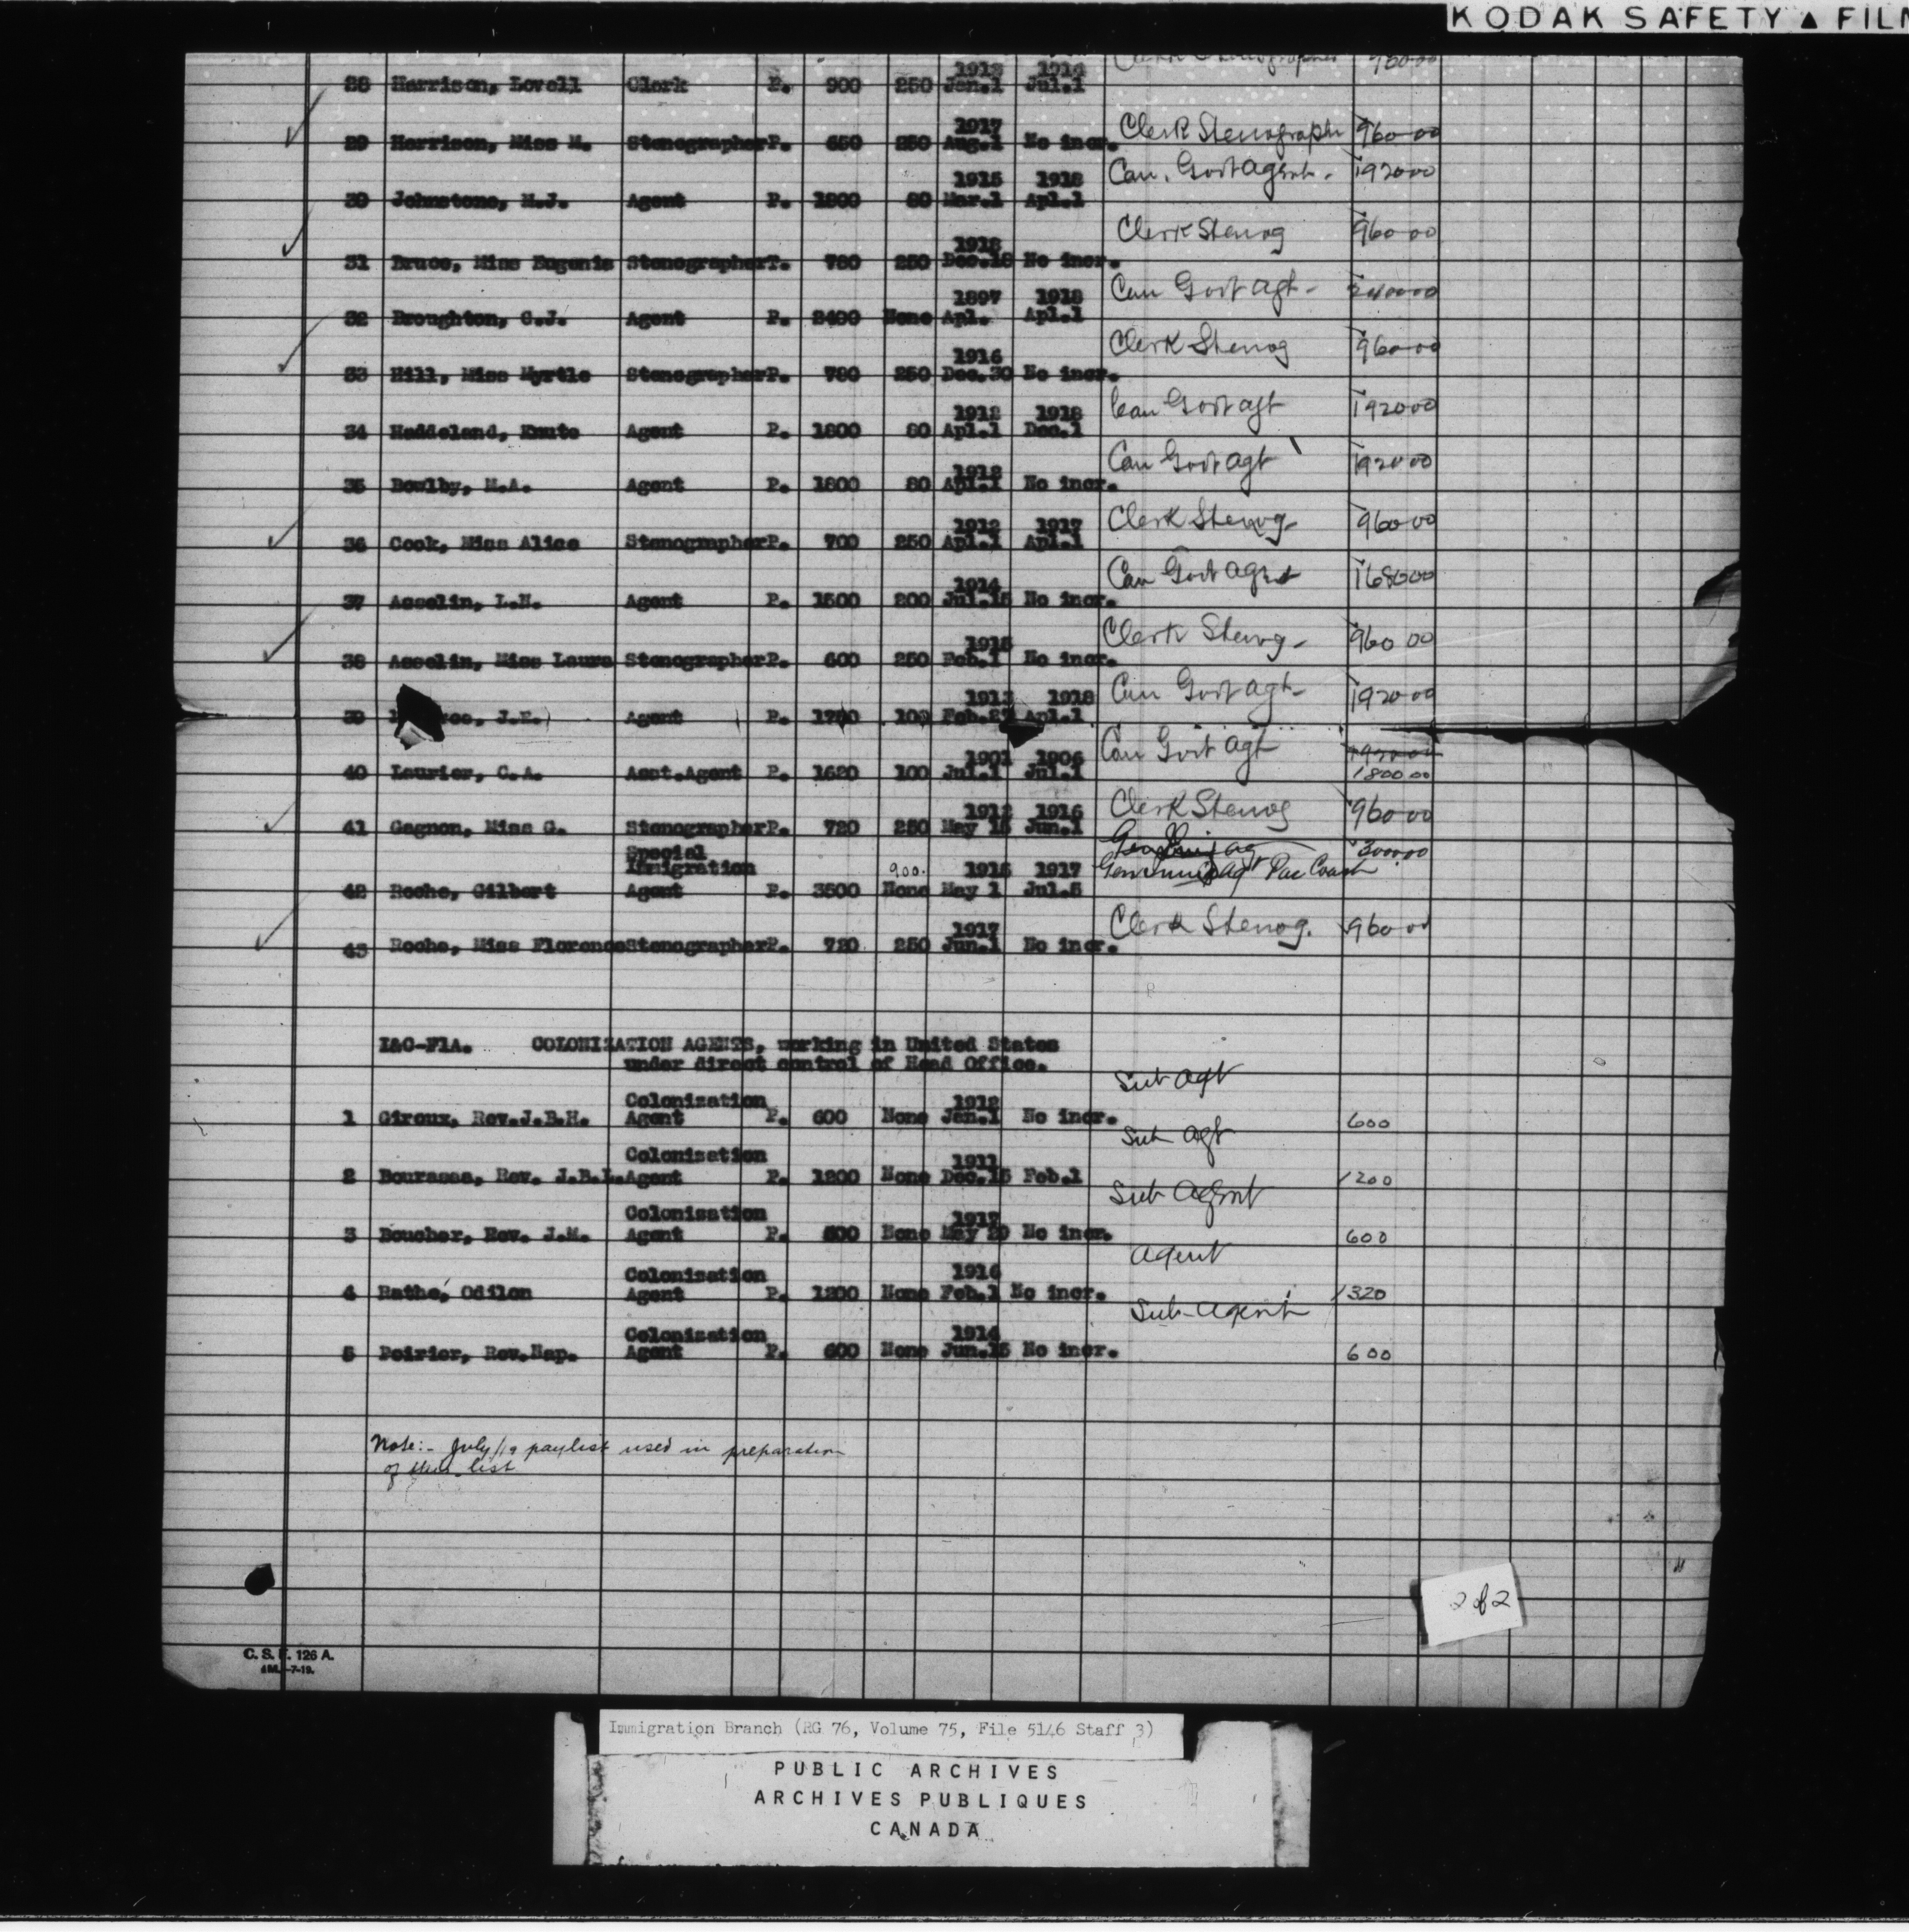 KODAK SAFETY ▲ FILM
1913 1914
28 Harrison, Lovell Clerk P. 900 250 Jan.1 Jul.1
1917 Clerk Stenographr 960 00
29 Harrison, Miss M. Stenographer P. 650 250 Aug.1 No incr.
1915 1918 Can. Govt Agent. 1920 00
30 Johnstone, M.J. Agent P. 1800 80 Mar.1 Apl.1
1918 Clerk Stenog 960 00
31 Bruce, Miss Eugenia Stenographer T. 780 250 Dec.18 No incr.
1897 1918 Can Govt Agt - 2400 00
32 Broughton, C.J. Agent P. 2400 None Apl. Apl.1
1916 Clerk Stenog 960 00
33 Hill, Miss Myrtle Stenographer P. 780 250 Dec.30 No incr.
1912 1918 Can Govt Agt 1920 00
34 Haddeland, Knute Agent P. 1800 80 Apl.1 Dec.1
1912 Can Govt Agt 1920 00
35 Bowlby, M.A. Agent P. 1800 80 Apl.1 No incr.
1912 1917 Clerk Stenog- 960 00
36 Cook, Miss Alice Stenographer P. 700 250 Apl.1 Apl.1
1914 Can Govt Agent 1680 00
37 Asselin, L.N. Agent P. 1500 200 Jul.15 No incr.
1915 Clerk Stenog- 960 00
38 Asselin, Miss Laura Stenographer P. 600 250 Feb.1 No incr.
1913 1918 Can Govt Agt- 1920 00
39 J.E. Agent P. 100 Feb.27 Apl.1
1901 1906 Can Govt Agt 1920 00
40 Laurier, C.A. Asst.Agent P. 1620 100 Jul.1 Jul.1 1800 00
1912 1916 Clerk Stenog 960 00
41 Gagnon, Miss G. Stenographer P. 720 250 May 15 Jun.1
Special 3000 00
Immigration 900. 1915 1917 Gen Immig Agt Pac Coast
42 Roche, Gilbert Agent P. 3500 None May 1 Jul.5
1917 Clerk Stenog. 960 00
43 Roche, Miss Florence Stenographer P. 720 250 Jun.1 No incr.
I&C-F1A. COLONIZATION AGENTS, working in United States
under direct control of Head Office.
Sub Agt
Colonization 1912
1 Giroux, Rev.J.B.H. Agent P. 600 None Jan.1 No incr. 600
Sub Agt
Colonization 1911
2 Bourassa, Rev. J.B.L. Agent P. 1200 None Dec.15 Feb.1 1200
Sub Agent
Colonization 1917
3 Boucher, Rev. J.M. Agent P. 600 None May 29 No incr. 600
Agent
Colonization 1916
4 Rathé, Odilon Agent P. 1200 None Feb.1 No incr. 1320
Sub-Agent
Colonization 1914
5 Poirier, Rev.Nap. Agent P. 600 None Jun.15 No incr. 600
Note:- July/19 paylist used in preparation
of this list
2 of 2
C. S. F. 126 A.
4M.-7-19.
Immigration Branch (RG 76, Volume 75, File 5146 Staff 3)
PUBLIC ARCHIVES
ARCHIVES PUBLIQUES
CANADA